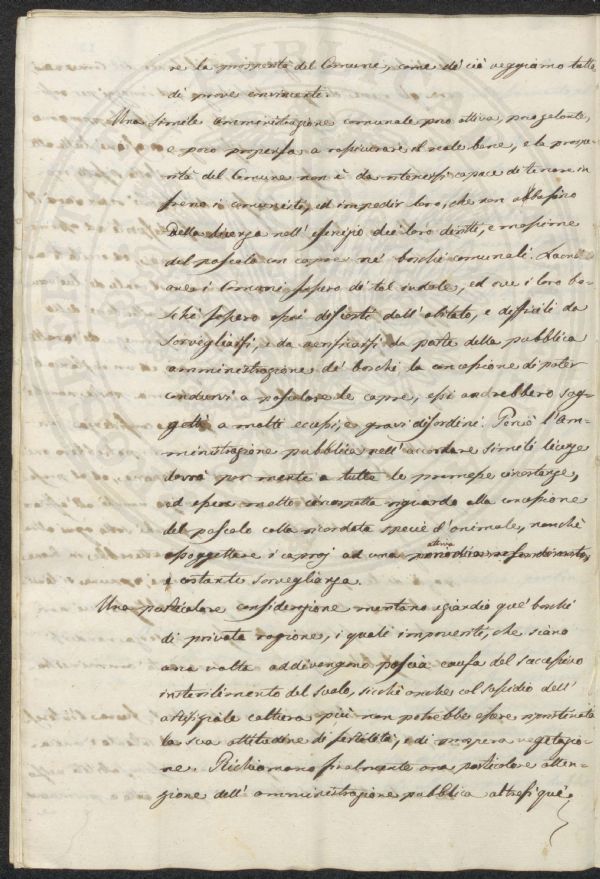 re la prosperità del Comune, come di ciò veggiamo tutto
dì prove convincenti.
Una simile amministrazione comunale poco attiva, poco zelante,
e poco propensa a rassicurare il reale bene, e la prospe-
rità del Comune non è da ritenersi capace di tenere in
freno i comunisti, ed impedir loro, che non abbusino
della licenza nell' esercizio dei loro diritti, e massime
del pascolo con capre ne' boschi comunali. Laon-
que i Comuni fossero di tal indole, ed ove i loro bo-
schi fossero assai discosti dall' abitato, e difficili da
sorvegliarsi, e da verificarsi da parte della pubblica
amministrazione de' boschi la concessione di poter
condurvi a pascolare le capre, essi andrebbero sog-
getti a molti eccessi, e gravi disordini. Perciò l' Am-
ministrazione pubblica nell' accordare simili licenze
dovrà por mente a tutte le premesse circostanze,
ed essere molto circospetta riguardo alla concessione
del pascolo colla ricordata specie d' animale, nonchè
assoggettare i capraj ad una
e costante sorveglianza.
Una particolare considerazione meritano eziandio que' boschi
di privata ragione, i quali impoveriti, che siano
una volta addivengono poscia causa del successivo
insterilimento del suolo, sicchè anche col sussidio dell'
artifiziale coltura più non potrebbe essere ripristinata
la sua attitudine di fertilità, e di prospera vegetazio-
ne. Richiamano finalmente una particolare atten-
zione dell' amministrazione pubblica altresì que'